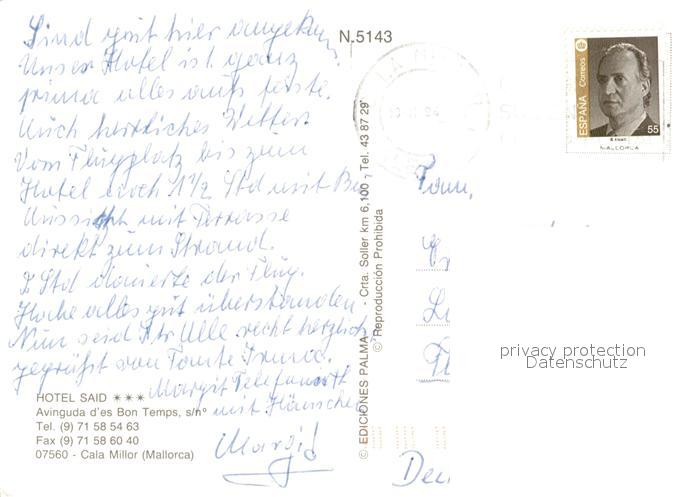 Sind gut hier angekom.
Unser Hotel ist ganz
prima alles aufs feste.
Auch herrliches Wetter.
Vom Flugplatz bis zum
Hotel noch 1½ Std mit Bu
Aussicht mit Terrasse
direkt zum Strand.
2 Std dauerte der Flug.
Habe alles gut überstanden.
Nun seid Ihr Alle recht herzlich
gegrüßt von Tante Irma.
Margit Telefoniert
mit Hänschen
Margit
HOTEL SAID ✶✶✶
Avinguda d'es Bon Temps, s/nº
Tel. (9) 71 58 54 63
Fax (9) 71 58 60 40
07560 - Cala Millor (Mallorca)
N.5143
© EDICIONES PALMA - Crta. Soller km 6,100 - Tel. 43 87 29
© Reproducción Prohibida
ESPAÑA
Correos
55
MALLORCA
Fam.
privacy protection
Datenschutz